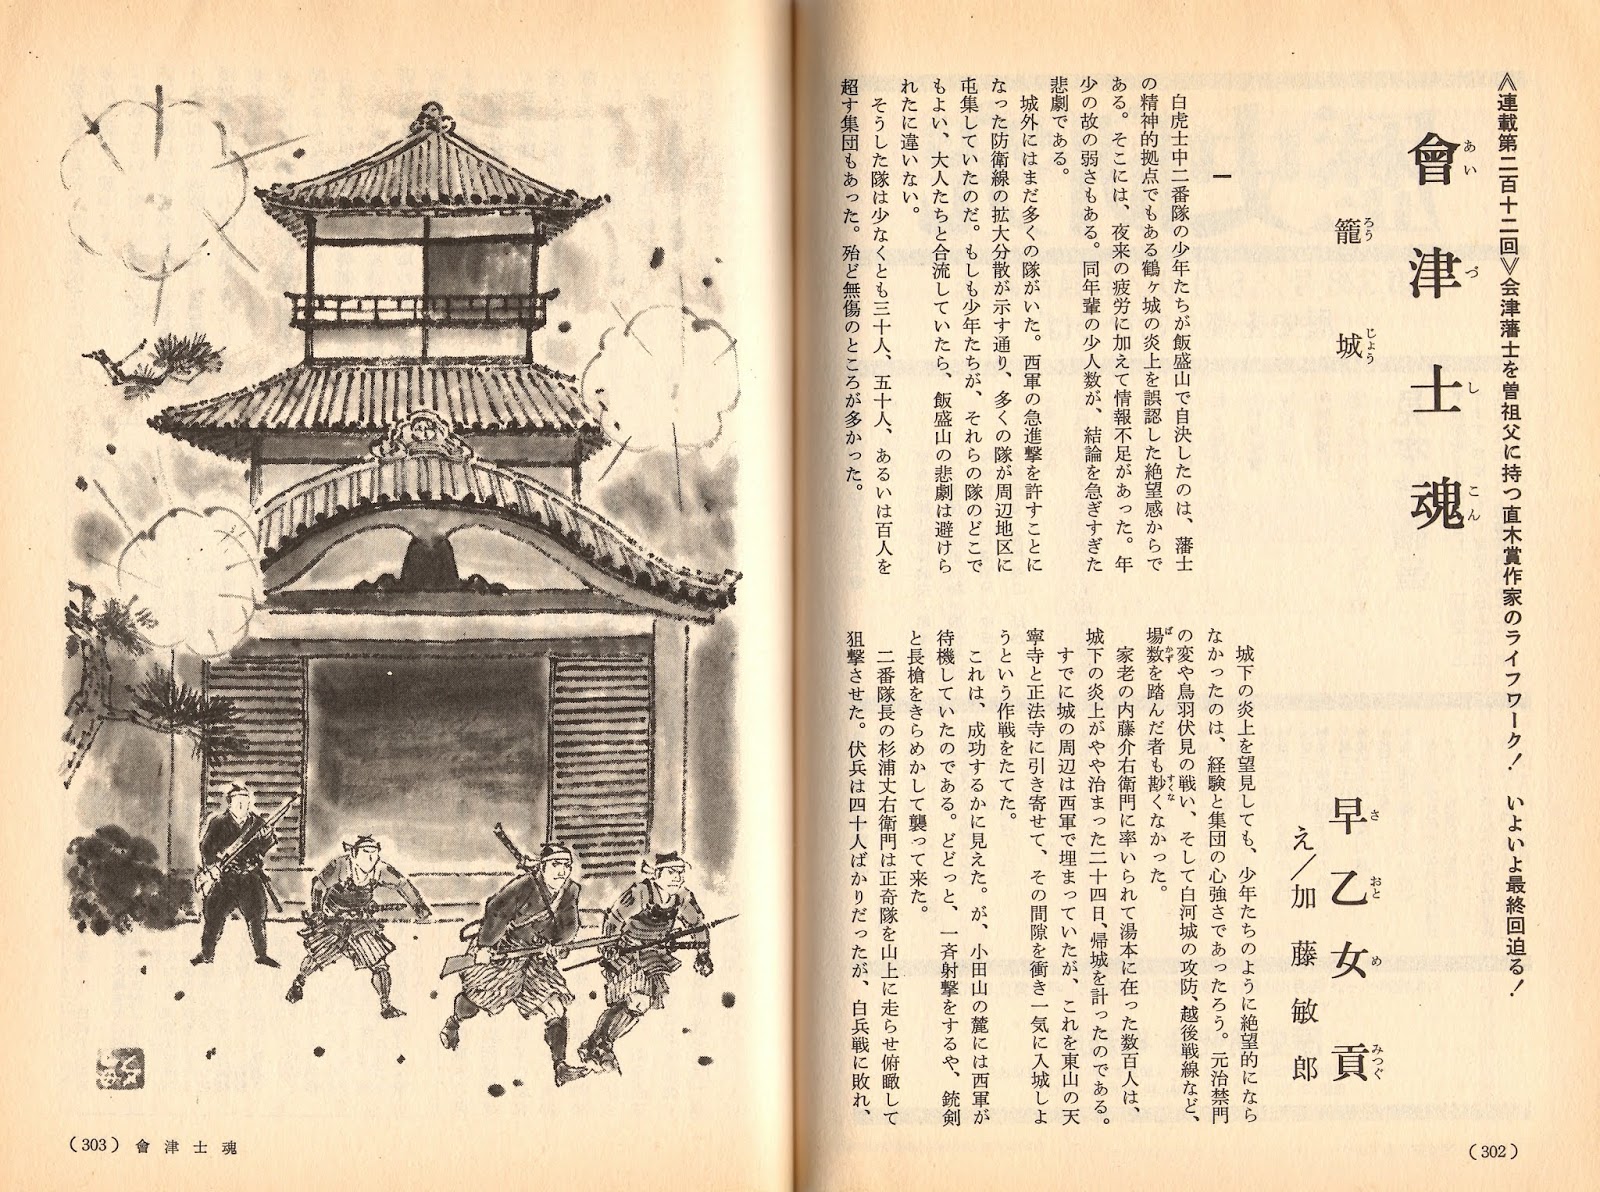 ≪連載第二百十二回≫会津藩士を曽祖父に持つ直木賞作家のライフワーク！　いよいよ最終回迫る！
會津士魂
あいづしこん
籠城
ろうじょう
早乙女貢
さおとめみつぐ
え／加藤敏郎
一
白虎士中二番隊の少年たちが飯盛山で自決したのは、藩士
の精神的拠点でもある鶴ヶ城の炎上を誤認した絶望感からで
ある。そこには、夜来の疲労に加えて情報不足があった。年
少の故の弱さもある。同年輩の少人数が、結論を急ぎすぎた
悲劇である。
城外にはまだ多くの隊がいた。西軍の急進撃を許すことに
なった防衛線の拡大分散が示す通り、多くの隊が周辺地区に
屯集していたのだ。もしも少年たちが、それらの隊のどこで
もよい、大人たちと合流していたら、飯盛山の悲劇は避けら
れたに違いない。
そうした隊は少なくとも三十人、五十人、あるいは百人を
超す集団もあった。殆ど無傷のところが多かった。
城下の炎上を望見しても、少年たちのように絶望的になら
なかったのは、経験と集団の心強さであったろう。元治禁門
の変や鳥羽伏見の戦い、そして白河城の攻防、越後戦線など、
場数を踏んだ者も尠くなかった。
ばかず
すくな
家老の内藤介右衛門に率いられて湯本に在った数百人は、
城下の炎上がやや治まった二十四日、帰城を計ったのである。
すでに城の周辺は西軍で埋まっていたが、これを東山の天
寧寺と正法寺に引き寄せて、その間隙を衝き一気に入城しよ
うという作戦をたてた。
これは、成功するかに見えた。が、小田山の麓には西軍が
待機していたのである。どどっと、一斉射撃をするや、銃剣
と長槍をきらめかして襲って来た。
二番隊長の杉浦丈右衛門は正奇隊を山上に走らせ俯瞰して
狙撃させた。伏兵は四十人ばかりだったが、白兵戦に敗れ、
(302)
(303) 會津士魂